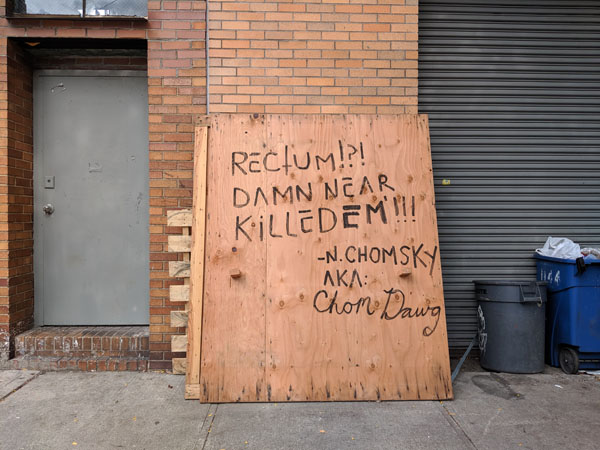 RECTUM!?!
DAMN NEAR
KiLLEDEM'!!!
-N.CHOMSKY
AKA:
Chom Dawg